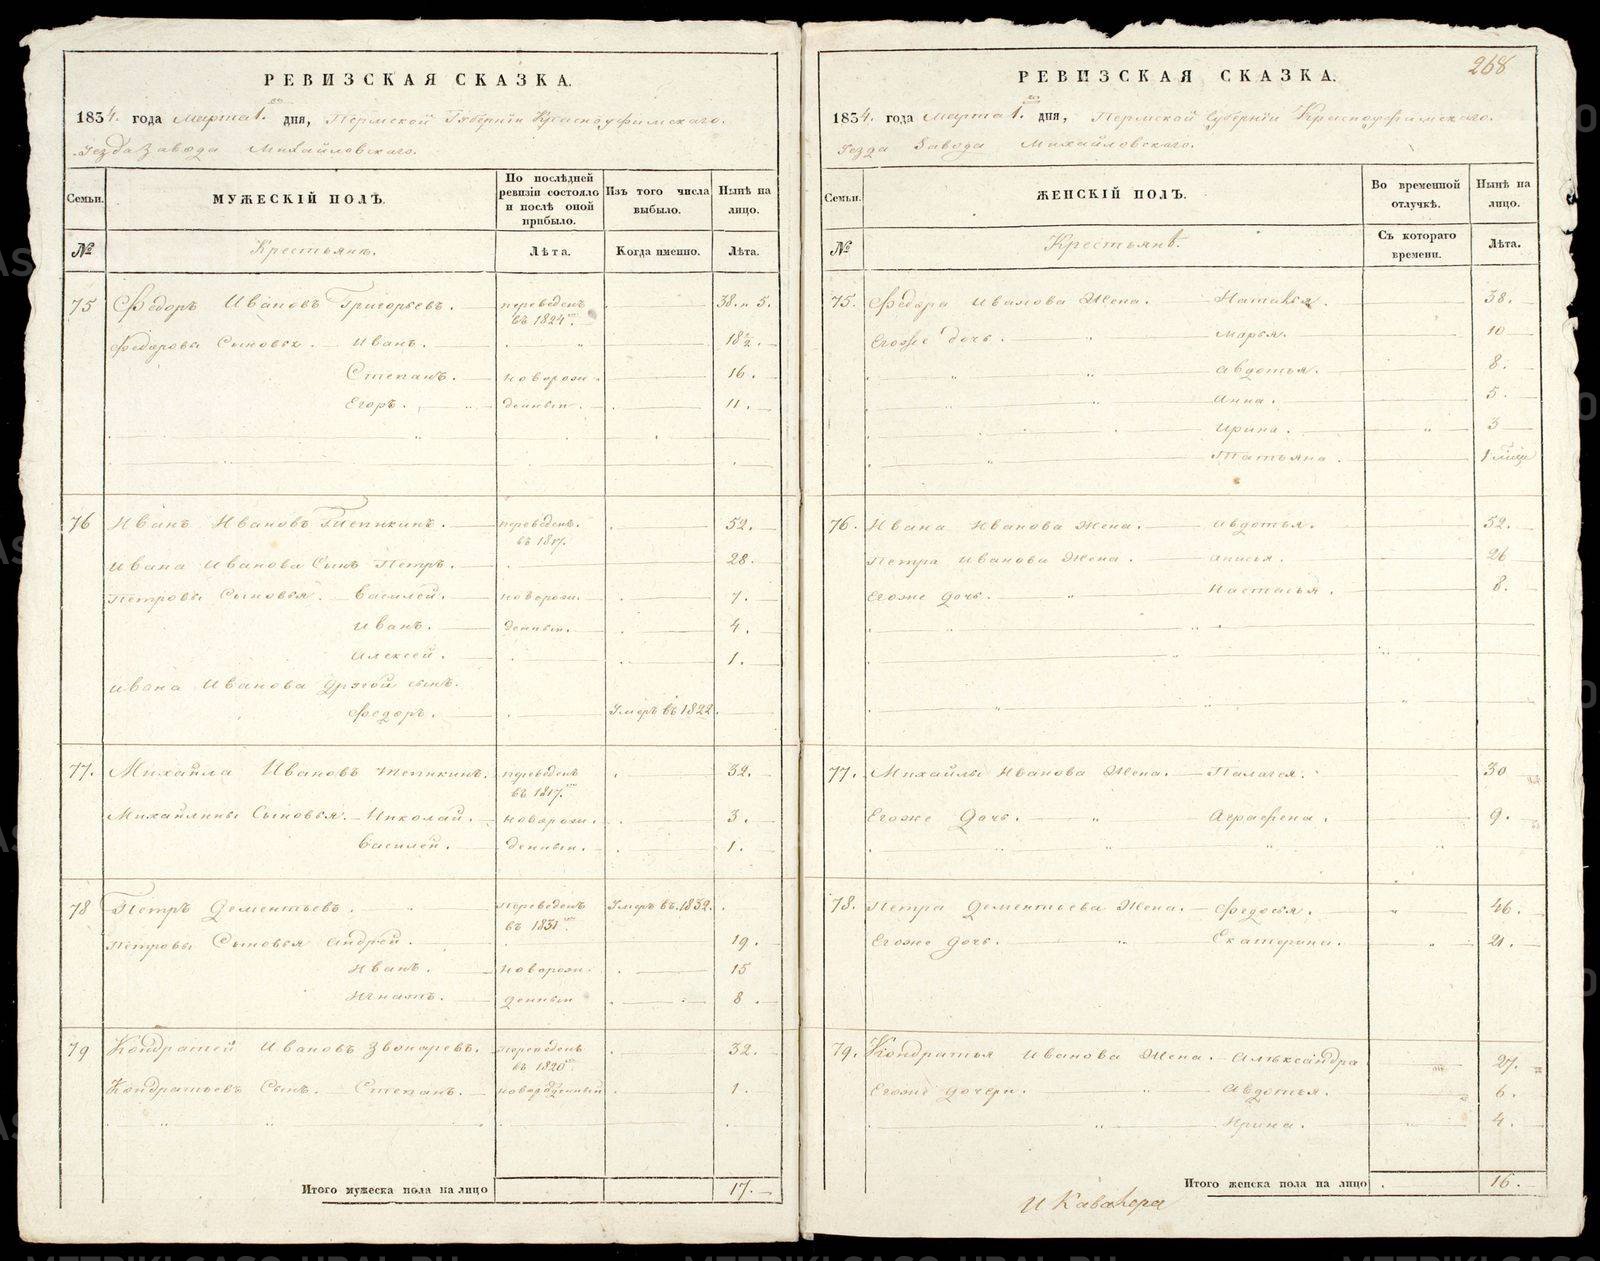 РЕВИЗСКАЯ СКАЗКА.
1834. года Марта 1го дня, Пермской Губернiи Красноуфимскаго.
Уезда Завода Михайловскаго.
Семьи. МУЖЕСКIЙ ПОЛЪ. По послѣдней ревизiи состояло и послѣ оной прибыло. Изъ того числа выбыло. Нынѣ на лицо.
№ Крестьянъ. Лѣта. Когда именно. Лѣта.
75 Федоръ Ивановъ Григорьевъ. переведенъ 38. и 5.
въ 1824го
Федоровы Сыновья. Иванъ. 18 ½.
Степанъ. новорож- 16.
Егоръ. денный. 11.
76 Иванъ Ивановъ Тепикинъ. переведенъ. 52.
въ 1817.
Ивана Иванова Сынъ Петръ. 28.
Петровы Сыновья. Василей. новорож. 7.
Иванъ. денный. 4.
Алексей. 1.
Ивана Иванова другой сынъ.
Федоръ. Умеръ въ 1822.
77. Михайла Ивановъ Тепикинъ. переведенъ 32.
въ 1817го
Михайлины Сыновья. Николай. новорож. 3.
Василей. денный. 1.
78 Петръ Дементьевъ. переведенъ Умеръ въ 1832.
въ 1831го
Петровы Сыновья Андрей. 19.
Иванъ. новорож. 15
Игнатъ. денный 8.
79 Кондратей Ивановъ Звонаревъ. переведенъ 32.
въ 1820го
Кондратьевъ Сынъ. Степанъ. новорожденный 1.
Итого мужеска пола на лицо 17.
268
РЕВИЗСКАЯ СКАЗКА.
1834. года Марта 1го дня, Пермской Губернiи Красноуфимскаго.
Уезда Завода Михайловскаго.
Семьи. ЖЕНСКIЙ ПОЛЪ. Во временной отлучкѣ. Нынѣ на лицо.
№ Крестьянъ. Съ котораго времени. Лѣта.
75. Федора Иванова Жена. Наталья. 38.
Егоже дочь. Марья. 10
Авдотья. 8.
Анна. 5.
Ирина. 3
Татьяна. 1
76. Ивана Иванова Жена. Авдотья. 52.
Петра Иванова Жена. Анисья. 26
Егоже дочь. Настасья. 8.
77. Михайлы Иванова Жена. Палагея. 30
Егоже Дочь. Аграфена. 9.
78. Петра Дементьева Жена. Федосья. 46.
Егоже дочь. Екатерина. 21.
79. Кондратья Иванова Жена. Александра 27.
Егоже дочери. Авдотья. 6.
Ирина. 4.
Итого женска пола на лицо 16.
И Кавалера